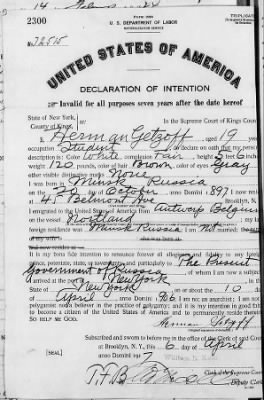 14
2300
Form 2203
U. S. DEPARTMENT OF LABOR
NATURALIZATION SERVICE
TRIPLICATE
No. 72515
UNITED STATES OF AMERICA
DECLARATION OF INTENTION
Invalid for all purposes seven years after the date hereof
State of New York,
County of Kings,
In the Supreme Court of Kings County
I, Herman Getzoff, aged 19 years,
occupation Student, do declare on oath that my personal
description is: Color White, complexion Fair, height 5 feet
weight 120 pounds, color of hair Brown, color of eyes Gray
other visible distinctive marks None
I was born in Minsk Russia
on the day of October, anno Domini 1897; I now reside
at Belmont Ave, Brooklyn, N.Y.
I emigrated to the United States of America from Antwerp Belgium
on the vessel; my last
foreign residence was Minsk Russia
It is my bona fide intention to renounce forever all allegiance and fidelity to any foreign
prince, potentate, state, or sovereignty, and particularly to The Present
Government of Russia, of whom I am now a subject;
I arrived at the port of New York, in the
State of New York, on or about the 10 day
of April, anno Domini; I am not an anarchist; I am not a
polygamist nor a believer in the practice of polygamy; and it is my intention in good faith
to become a citizen of the United States of America and to permanently reside therein:
SO HELP ME GOD.
Herman Getzoff
Subscribed and sworn to before me in the office of the Clerk of said Court
at Brooklyn, N.Y., this 6 day of April
anno Domini 1917
[SEAL]
T.F.B.